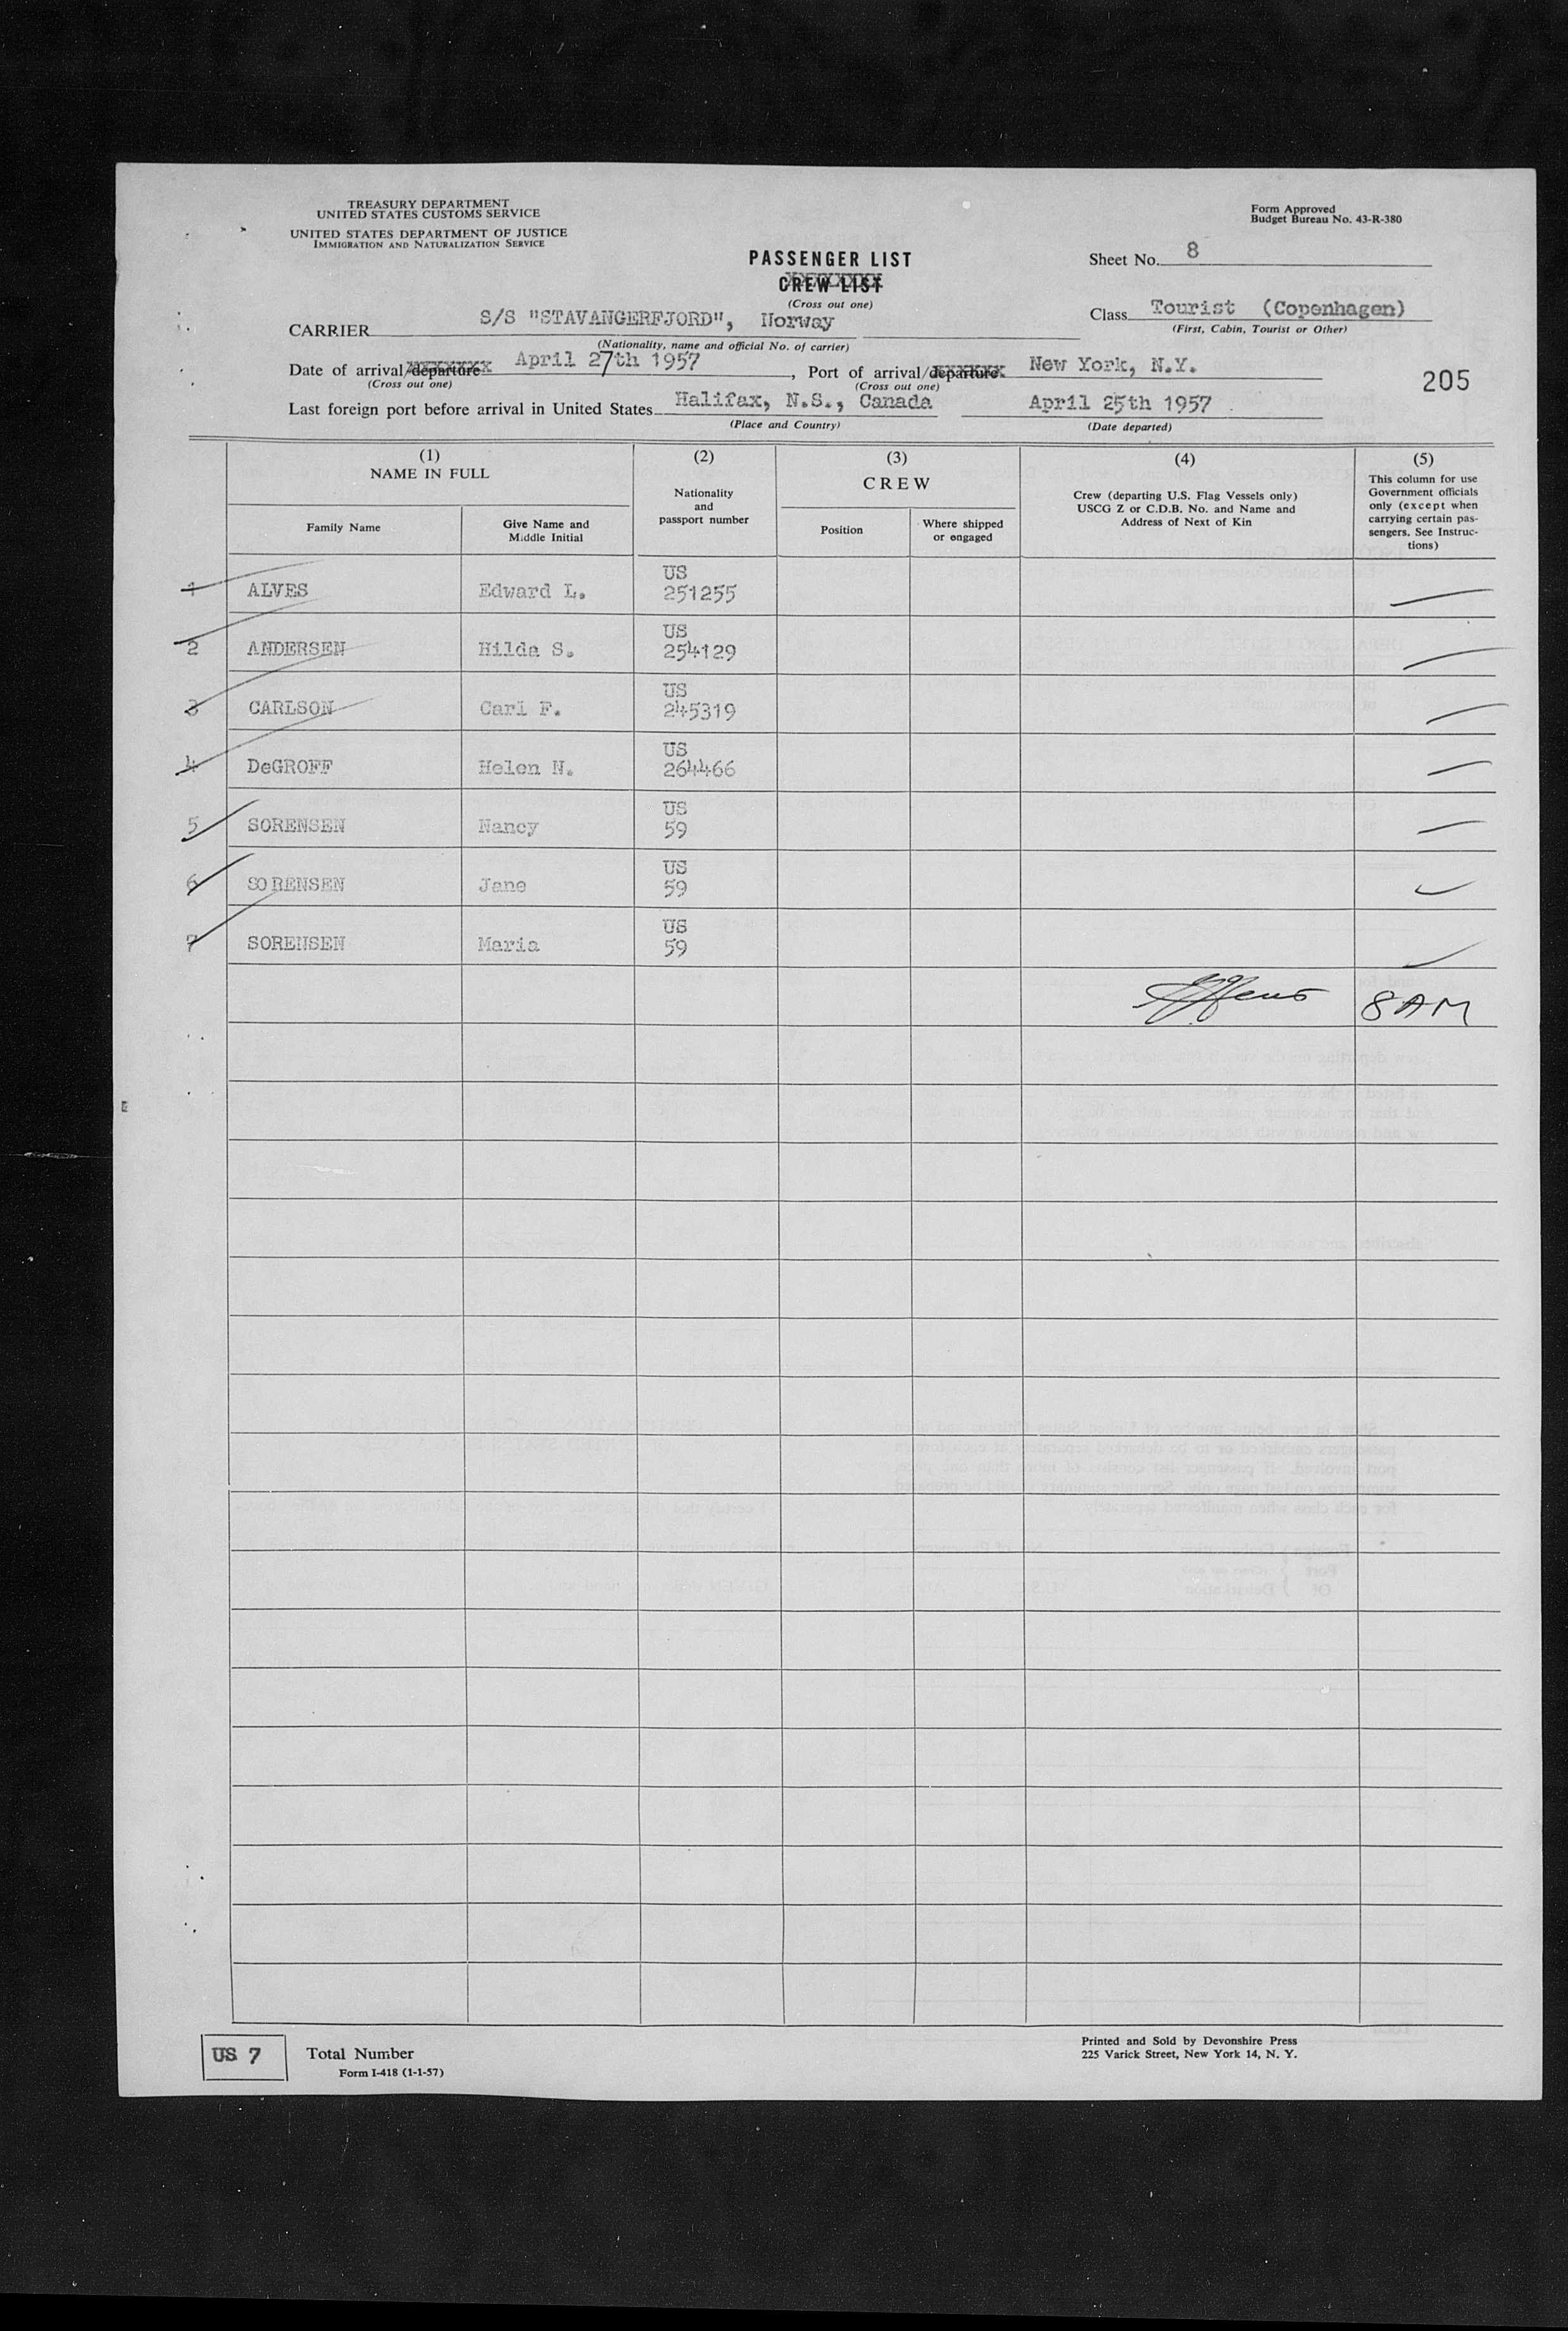 TREASURY DEPARTMENT
UNITED STATES CUSTOMS SERVICE
UNITED STATES DEPARTMENT OF JUSTICE
IMMIGRATION AND NATURALIZATION SERVICE
Form Approved
Budget Bureau No. 43-R-380
PASSENGER LIST
CREW LIST
(Cross out one)
Sheet No. 8
CARRIER S/S "STAVANGERFJORD", Norway
(Nationality, name and official No. of carrier)
Class Tourist (Copenhagen)
(First, Cabin, Tourist or Other)
Date of arrival/departure April 27th 1957, Port of arrival/departure New York, N.Y.
(Cross out one) (Cross out one)
205
Last foreign port before arrival in United States Halifax, N.S., Canada April 25th 1957
(Place and Country) (Date departed)
(1) (2) (3) (4) (5)
NAME IN FULL
Family Name
Give Name and
Middle Initial
Nationality
and
passport number
CREW
Position
Where shipped
or engaged
Crew (departing U.S. Flag Vessels only)
USCG Z or C.D.B. No. and Name and
Address of Next of Kin
This column for use
Government officials
only (except when
carrying certain pas-
sengers. See Instruc-
tions)
US
1 ALVES Edward L. 251255
US
2 ANDERSEN Hilda S. 254129
US
3 CARLSON Carl F. 245319
US
4 DeGROFF Helen N. 264466
US
5 SORENSEN Nancy 59
US
6 SORENSEN Jane 59
US
7 SORENSEN Maria 59
8 AM
US 7 Total Number
Form I-418 (1-1-57)
Printed and Sold by Devonshire Press
225 Varick Street, New York 14, N. Y.